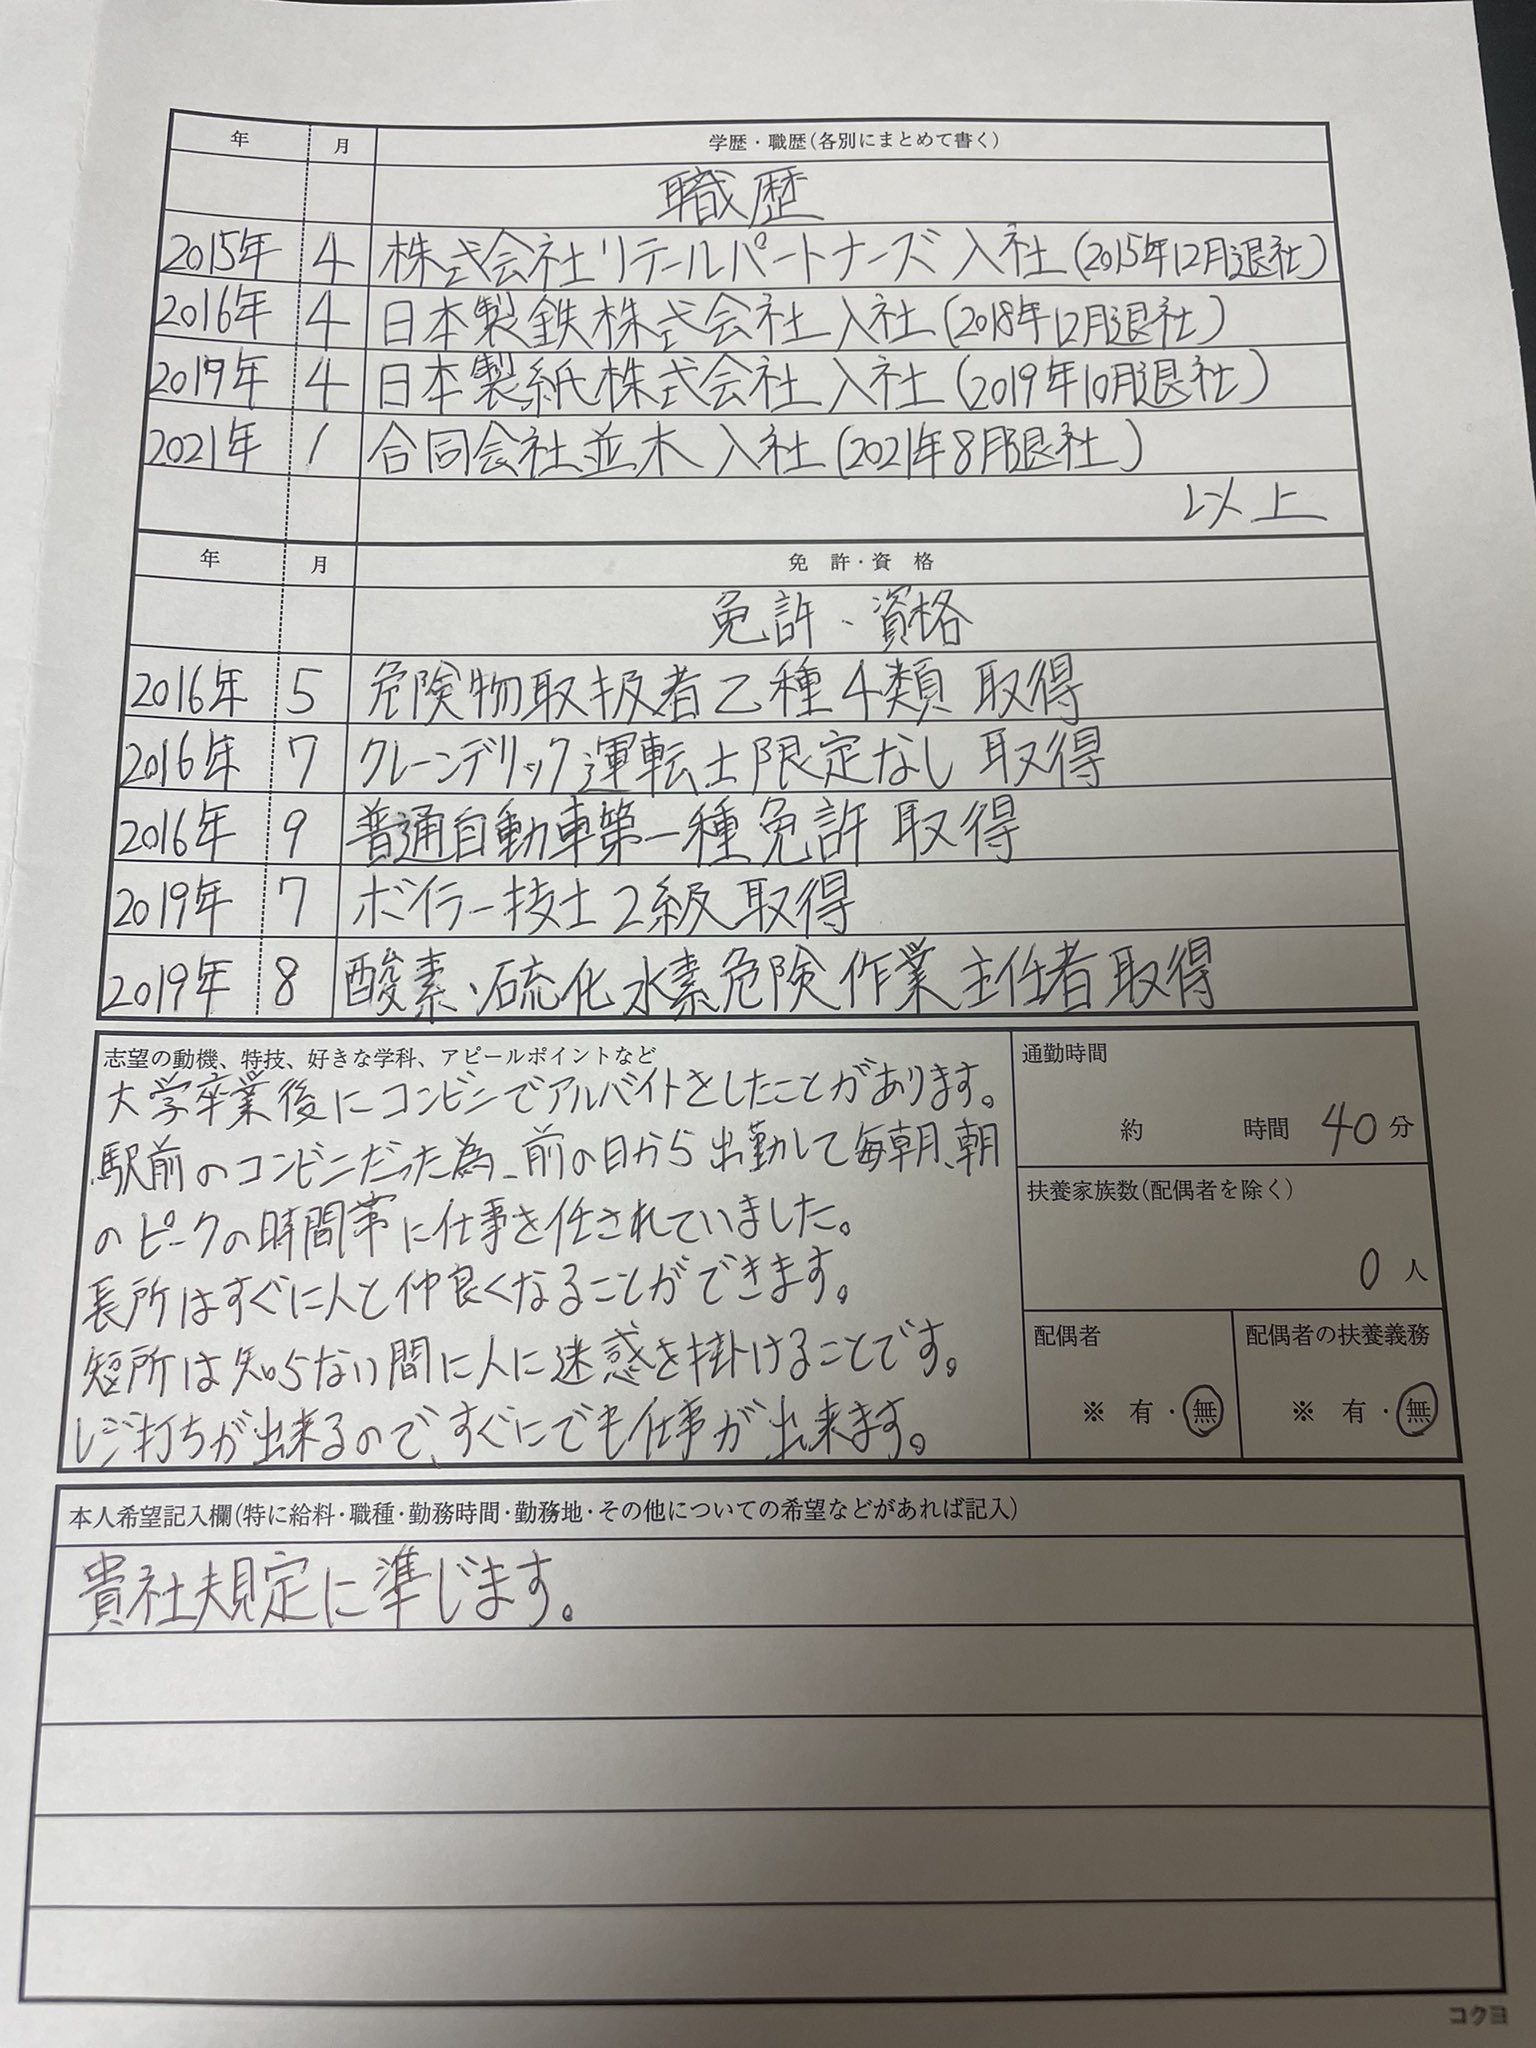 年 月 学歴・職歴(各別にまとめて書く)
職歴
2015年 4 株式会社リテールパートナーズ 入社(2015年12月退社)
2016年 4 日本製鉄株式会社 入社(2018年12月退社)
2019年 4 日本製紙株式会社 入社(2019年10月退社)
2021年 1 合同会社並木 入社(2021年8月退社)
以上
年 月 免許・資格
免許・資格
2016年 5 危険物取扱者乙種4類 取得
2016年 7 クレーンデリック運転士限定なし 取得
2016年 9 普通自動車第一種免許 取得
2019年 7 ボイラー技士2級 取得
2019年 8 酸素・硫化水素危険作業主任者 取得
志望の動機、特技、好きな学科、アピールポイントなど
大学卒業後にコンビニでアルバイトをしたことがあります。
駅前のコンビニだった為、前の日から出勤して毎朝、朝
のピークの時間帯に仕事を任されていました。
長所はすぐに人と仲良くなることができます。
短所は知らない間に人に迷惑を掛けることです。
レジ打ちが出来るので、すぐにでも仕事が出来ます。
通勤時間
約 時間 40分
扶養家族数(配偶者を除く)
0人
配偶者
※ 有・無
配偶者の扶養義務
※ 有・無
本人希望記入欄(特に給料・職種・勤務時間・勤務地・その他についての希望などがあれば記入)
貴社規定に準じます。
コクヨ